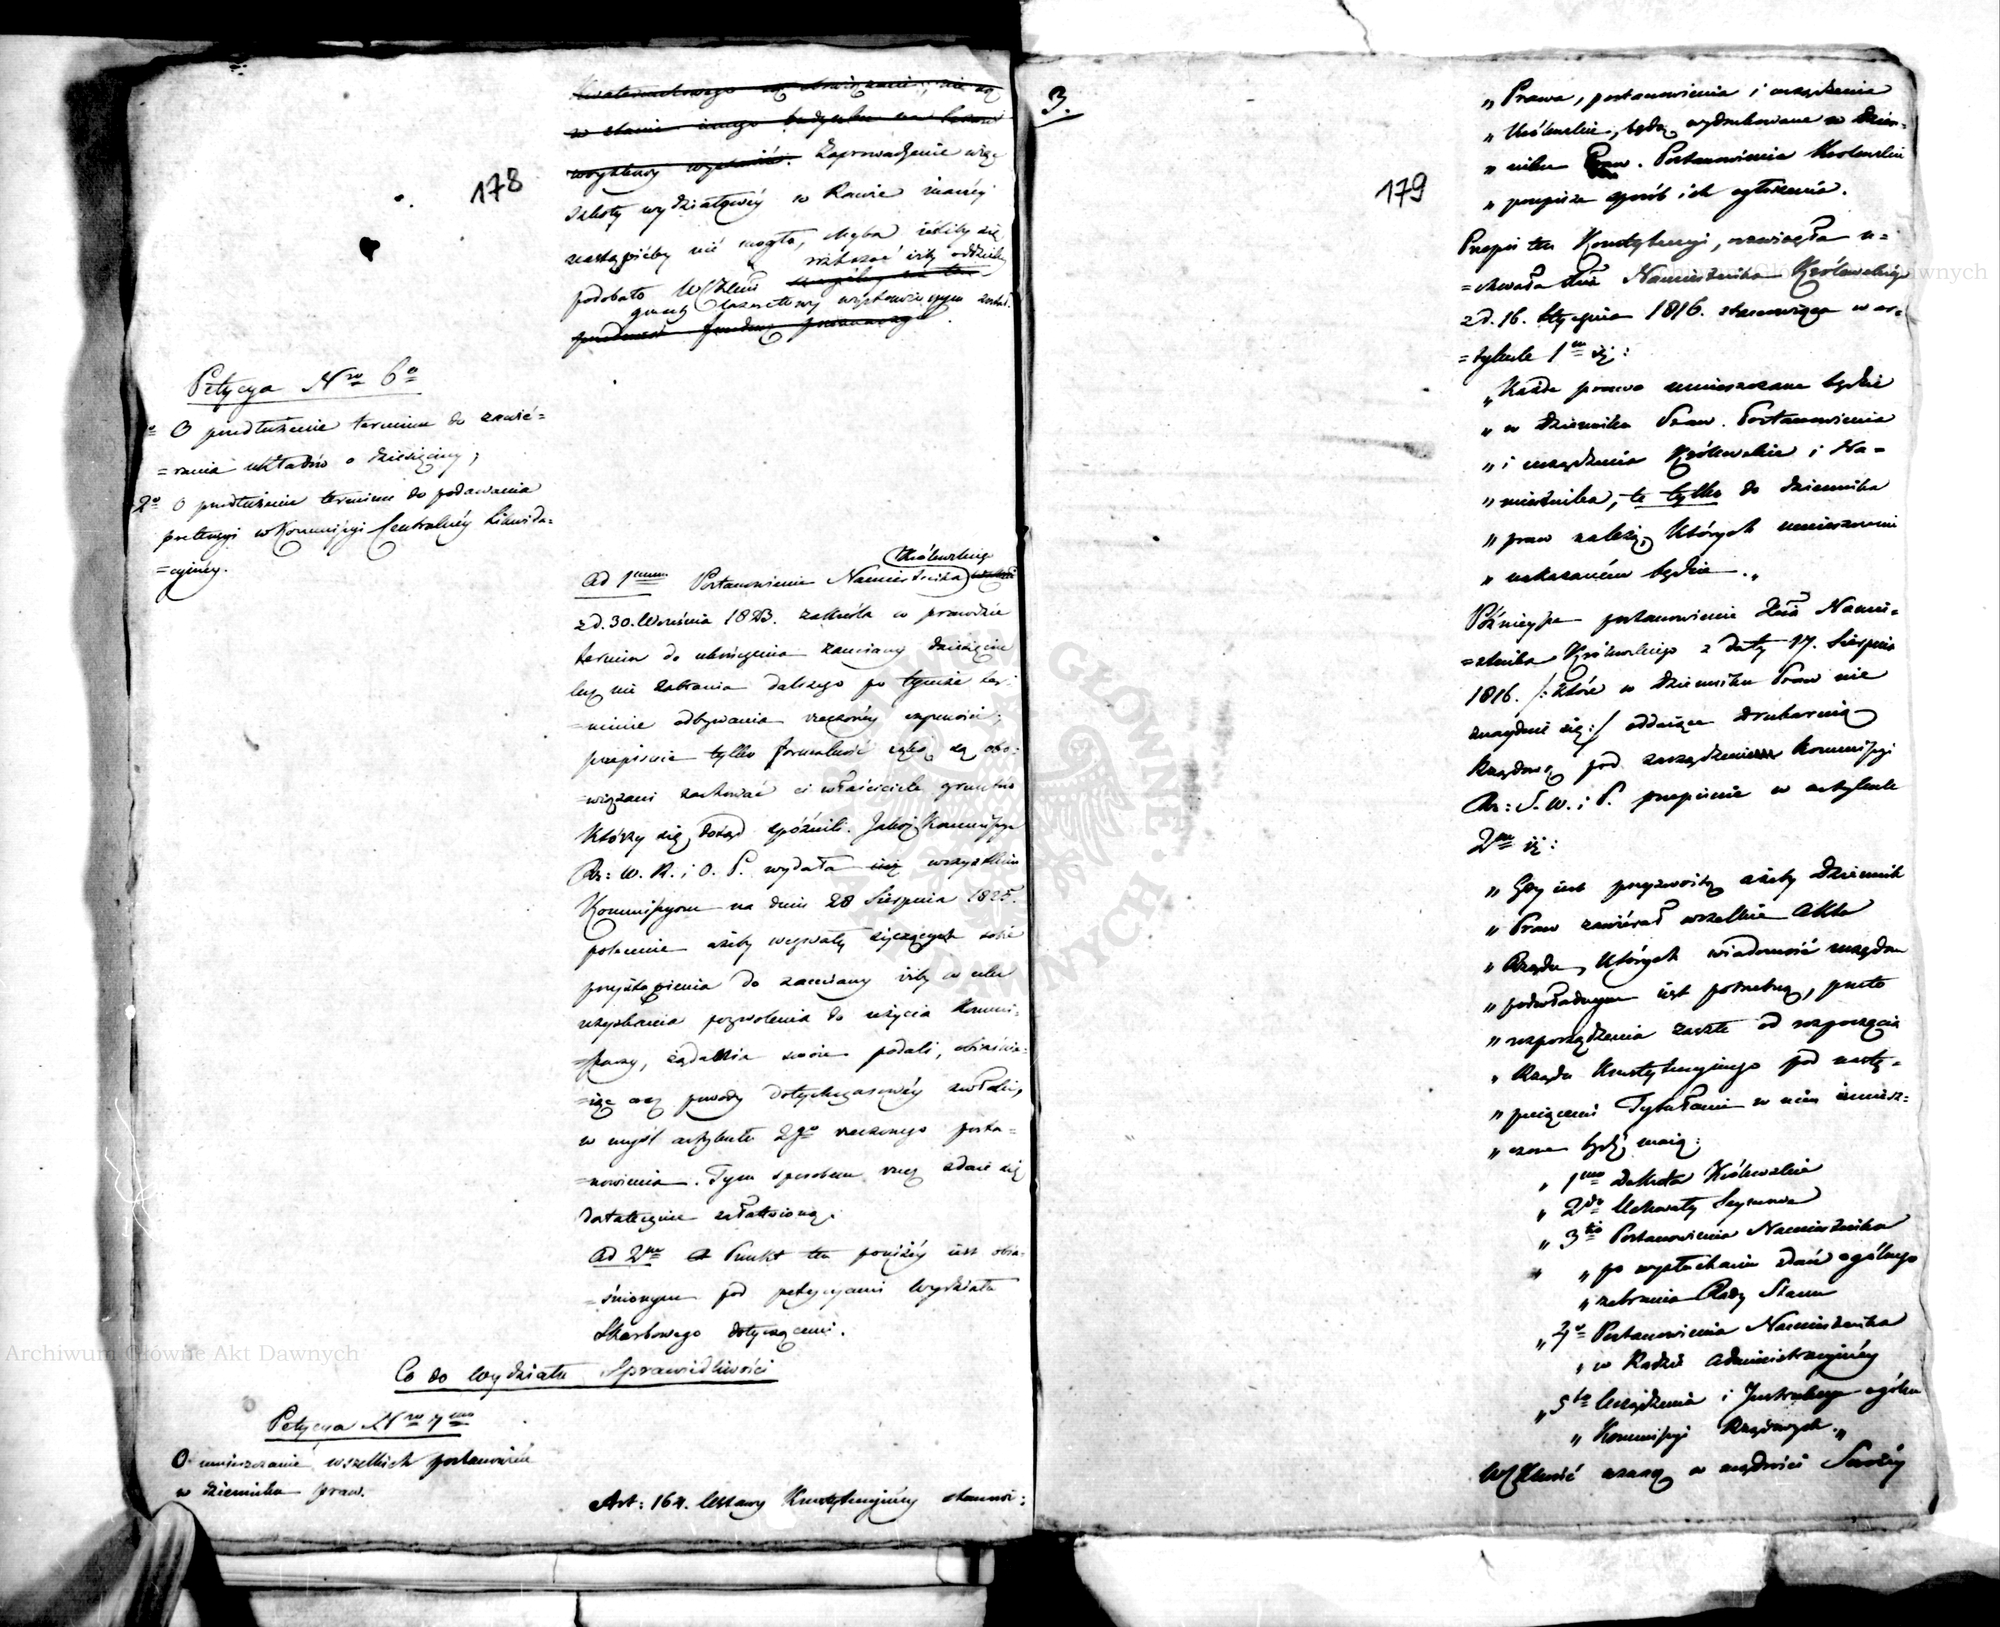 178
wszakże. Zaprowadzenie więc
szkoły wydziałowéy w Rawie inaczéy
nastąpićby nié mogło, chyba iżeliby się
podobało WCKMci rozkazać iżby oddzielny
gmach
Petycya Nro 6ta
1o O przedłużenie terminu do zawié=
=rania układów o dziesięciny;
2o O przedłużenie terminu do podawania
pretensyi w Kommissyi Centralnéy Likwida=
=cyinéy.
Ad 1mum Postanowienie Namiestnika Królewskiego
z d. 30. Września 1823. zakreśla w prawdzie
termin do ukończenia zamiany dziesięcin
lecz nie zabrania dalszego po tymże ter=
=minie odbywania rzeczonéy czynności;
przepisuie tylko formalność iakiéy są obo=
=wiązani zachować ci właściciele gruntów
którzy się dotąd spóźnili. Jakoż Kommissya
Rz: W. R. i O. P. wydała wszystkim
Kommissyom na dniu 28 Sierpnia 1825.
polecenie ażeby wezwały życzących sobie
przystąpienia do zamiany iżby w celu
uzyskania pozwolenia do użycia Kommi=
=ssarzy, żądania swoie podali, obiaśnia=
=iąc oraz powody dotychczasowéy zwłoki,
w myśl artykułu 27go rzeczonego posta=
=nowienia. Tym sposobem rzecz zdaie się
dostatecznie załatwioną.
Ad 2um Punkt ten poniżéy iest obia=
=śnionym pod petycyami Wydziału
Skarbowego dotyczącemi.
Co do Wydziału Sprawiedliwości
Petycya Nro 7ma
O umieszczanie wszelkich postanowień
w dzienniku praw.
Art: 164. Ustawy Konstytucyinéy stanowi:
3.
179
„ Prawa, postanowienia i urządzenia
„ Królewskie, będą wydrukowane w dzien=
„ niku Praw. Postanowienia Królewskie
„ przepisze sposób ich ogłoszenia.
Przepis ten Konstytucyi, rozwiązała u=
=chwała Xcia Namiestnika Królewskiego
z d. 16. Stycznia 1816. stanowiąca w ar=
=tykule 1m iż:
„ Każde prawo umieszczane będzie
„ w dzienniku Praw. Postanowienia
„ i urządzenia Królewskie i Na=
„ miestnika, te tylko do dziennika
„ praw należą, których umieszczenie
„ nakazaném będzie.„
Późnieysze postanowienie Xcia Namie=
=stnika Królewskiego z daty 17. Sierpnia
1816. /:które w dzienniku Praw nie
znayduie się:/ oddaiące drukarnią
Rządową pod zarządzenie Kommissyi
Rz: S. W. i P. przepisuie w artykule
2m iż:
„ Gdy iest przyzwoitą ażeby dziennik
„ Praw zawiérał wszelkie Akta
„ Rządu, których wiadomość urzędom
„ podwładnym iest potrzebną, przeto
„ rozporządzenia zaszłe od rozpoczęcia
„ Rządu Konstytucyinego pod nastę=
„ puiącemi Tytułami w nim umiesz=
„ czone bydź maią:
„ 1mo Dekreta Królewskie
„ 2do Uchwały Seymowe
„ 3tio Postanowienia Namiestnika
„ „ po wysłuchaniu zdań ogólnego
„ zebrania Rady Stanu
„ 4o Postanowienia Namiestnika
„ w Radzie Administracyinéy
„ 5to Urządzenia i Instrukcye ogólne
„ Kommissyi Rządowych.„
WCKMość uznasz w mądrości Swoiéy
Archiwum Główne Akt Dawnych